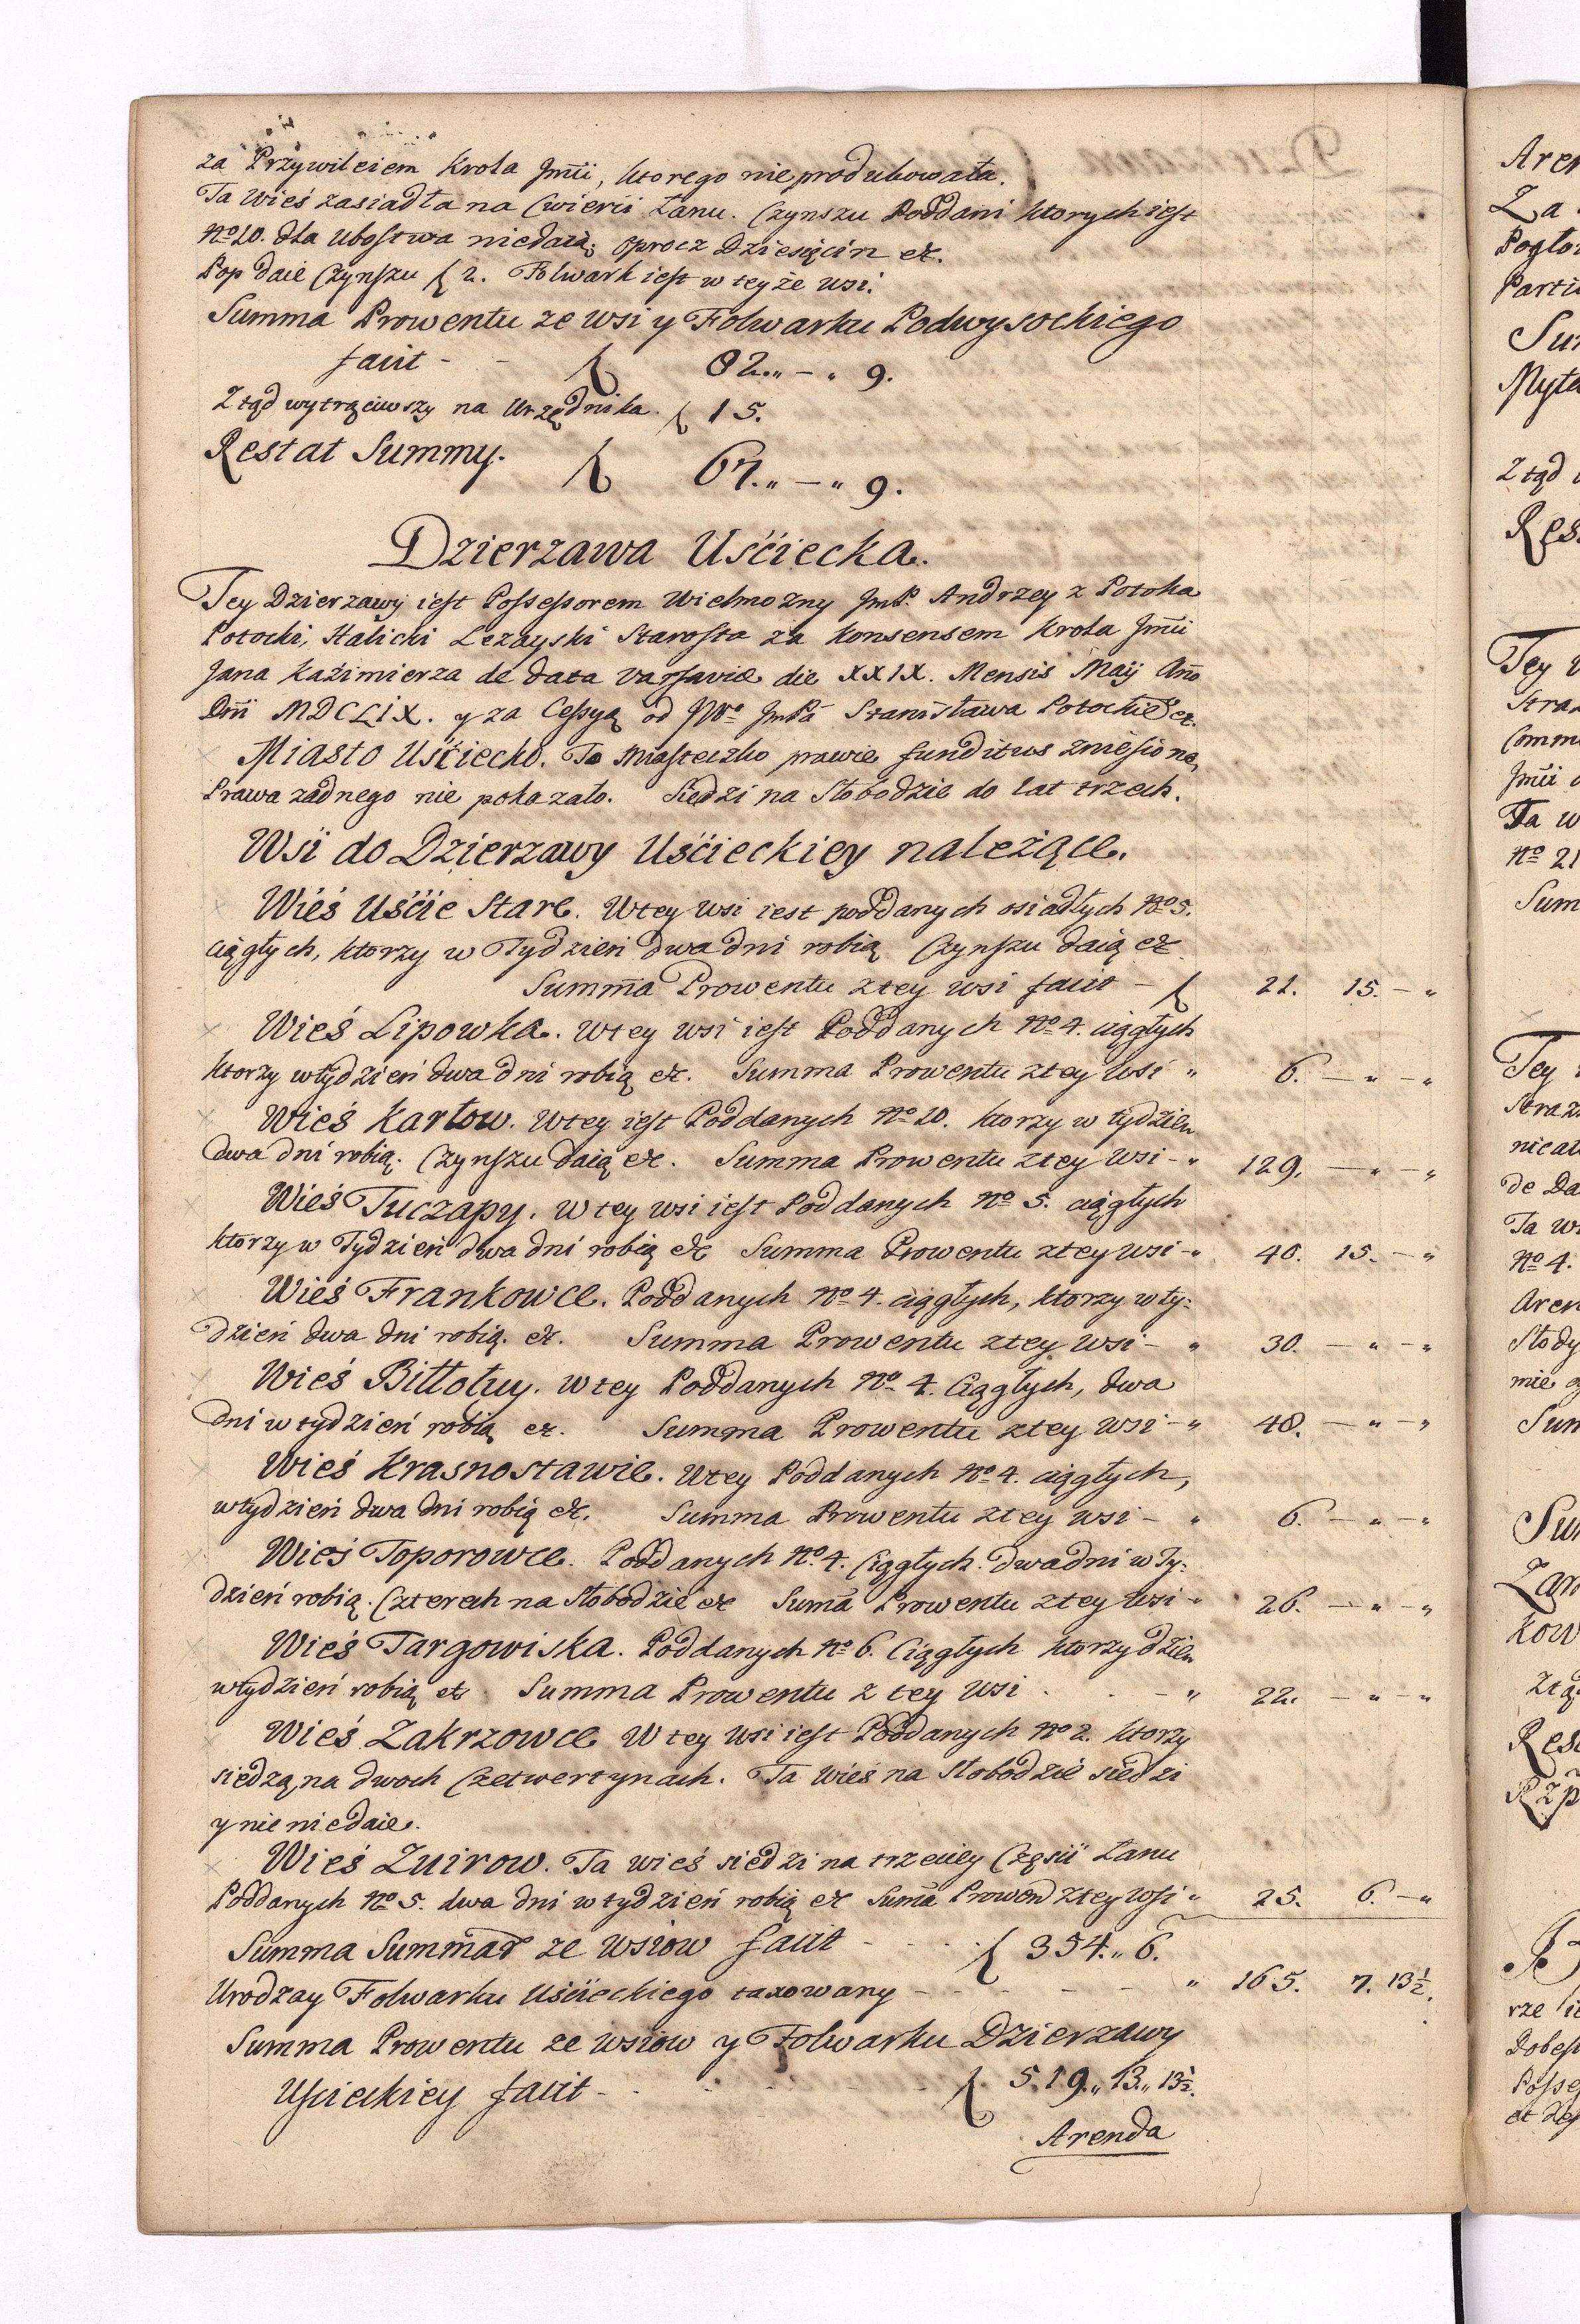 za Przywileiem Krola Jmći, ktorego nie produkowała.
Ta Wieś zasiadła na Cwierci Łanu. Czynszu Poddani ktorych iest
No 10. dla Ubostwa niedaią; oprocz Dziesięcin &c.
Pop daie Czynszu f 2. Folwark iest w teyże wsi.
Summa Prowentu ze wsi y Folwarku Podwysockiego
facit - - f 82.„ – „ 9.
Ztąd wytrąciwszy na Urzędnika. f 15.
Restat Summy. f 67.„ – „ 9.
Dzierzawa Uściecka.
Tey Dzierzawy iest Possessorem Wielmozny JmP. Andrzey z Potoka
Potocki, Halicki Lezayski Starosta za Konsensem Krola Jmći
Jana Kaźimierza de data Varsaviæ die XXIX. Mensis Maÿ Año
Dñi MDCLIX. y za Cessyą od JWo JmPa Stanisława Potockiego &c.
Miasto Uściecko. To Miasteczko prawie funditus zniesione,
Prawa zadnego nie pokazało. Siedzi na Słobodzie do lat trzech.
Wsi do Dzierzawy Uścieckiey należące.
Wieś Uśćie Stare. W tey wsi iest poddanych osiadłych No 5.
ciągłych, ktorzy w Tydzień dwa dni robią Czynszu daią &c.
Summa Prowentu z tey wsi facit – f 21. 15. – „
Wieś Lipowka. W tey wsi iest Poddanych No 4. ciągłych
ktorzy w tydzień dwa dni robią &c. Summa Prowentu z tey wsi „ 6. – „ – „
Wieś Karłow. W tey iest Poddanych No 10. ktorzy w tydzień
dwa dni robią. Czynszu daią &c. Summa Prowentu z tey wsi – „ 129. – „ – „
Wieś Tuczapy. W tey wsi iest Poddanych No 5. ciągłych
ktorzy w Tydzień dwa dni robią &c Summa Prowentu z tey wsi – „ 40. 15. – „
Wieś Frankowce. Poddanych No 4. ciągłych, ktorzy w ty:
dzień dwa dni robią. &c. Summa Prowentu z tey wsi – „ 30. – „ – „
Wieś Bitłołuy. W tey Poddanych No 4. Ciągłych, dwa
dni w tydzień robią &c. Summa Prowentu z tey wsi – „ 48. – „ – „
Wieś Krasnostawie. W tey Poddanych No 4. ciągłych,
w tydzień dwa dni robią &c. Summa Prowentu z tey wsi – „ 6. – „ – „
Wieś Toporowce. Poddanych No 4. Ciągłych. dwa dni w Ty:
dzień robią. Czterech na Słobodzie &c Suma Prowentu z tey wsi „ 26. – „ – „
Wieś Targowiska. Poddanych No 6. Ciągłych ktorzy dzień
w tydzień robią &c Summa Prowentu z tey wsi . . – „ 22. – „ – „
Wieś Zakrzowce W tey wsi iest Poddanych No 2. ktorzy
siedzą na dwoch Czetwertynach. Ta Wies na Słobodzie siedzi
y nic nie daie.
Wieś Zuirow. Ta wieś siedzi na trzeciey Częsci Łanu
Poddanych No 5. dwa dni w tydzień robią &c Suma Prowen z tey wsi „ 25. 6. – „
Summa Summar ze wsiow facit - - - f 354.„ 6.
Urodzay Folwarku Uścieckiego taxowany - - - - - „ 165. 7. 13½.
Summa Prowentu ze wsiow y Folwarku Dzierzawy
Uscieckiey facit - - - - - f 519.„ 13.„ 13½.
Arenda